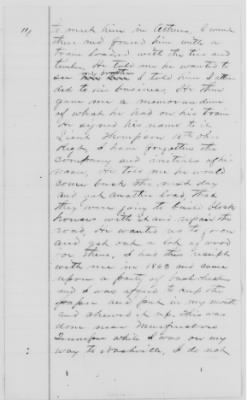 to meet him in Athens, I went
there and found him with a
train loaded with the ties and
timber. He told me he wanted to
see I told him I atten
ded to his business, He then
gave me a memorandum
of what he had on his train
He signed his name to it
Lieut Thompson 15th Ohio
Regt, I have forgotten the
Company and initials of his
name, He told me he would
come back the next day
and get another load that
they were going to build block
houses with it and repair the
road, He wanted us to go on
and get out a lot of wood
for them, I had this receipt
with me in 1863 and came
upon a party of
and I was afraid to keep the
paper and put in my mouth
and chewed it up, this was
done near Murfreesboro
Tennessee while I was on my
way to Nashville, I do not